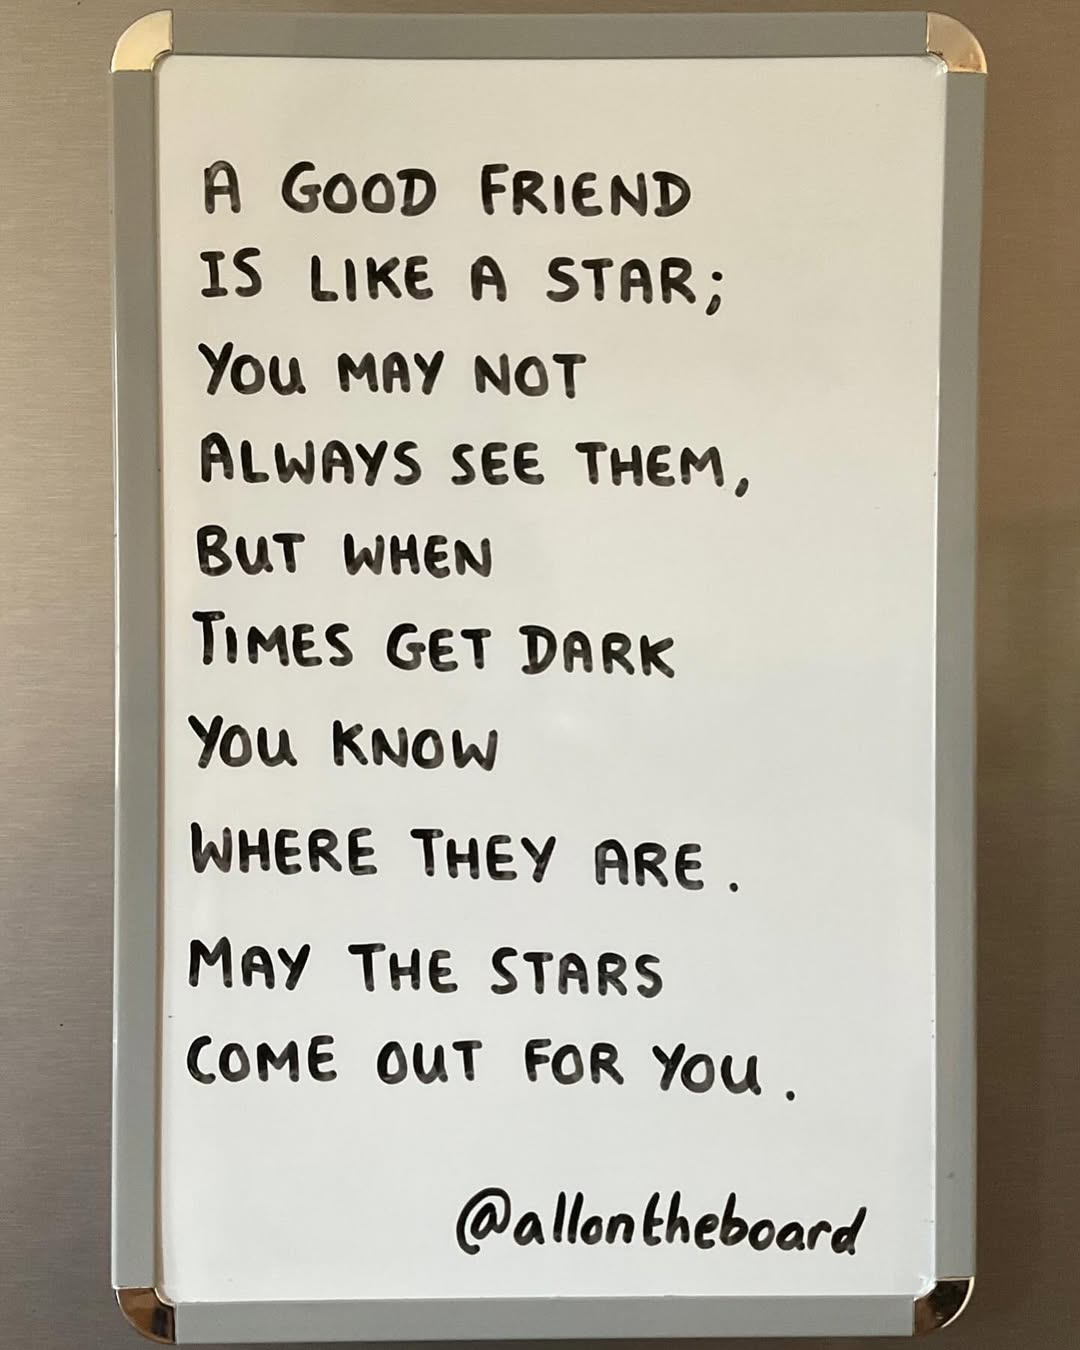 A GOOD FRIEND
IS LIKE A STAR;
YOU MAY NOT
ALWAYS SEE THEM,
BUT WHEN
TIMES GET DARK
YOU KNOW
WHERE THEY ARE.
MAY THE STARS
COME OUT FOR YOU.
@allontheboard